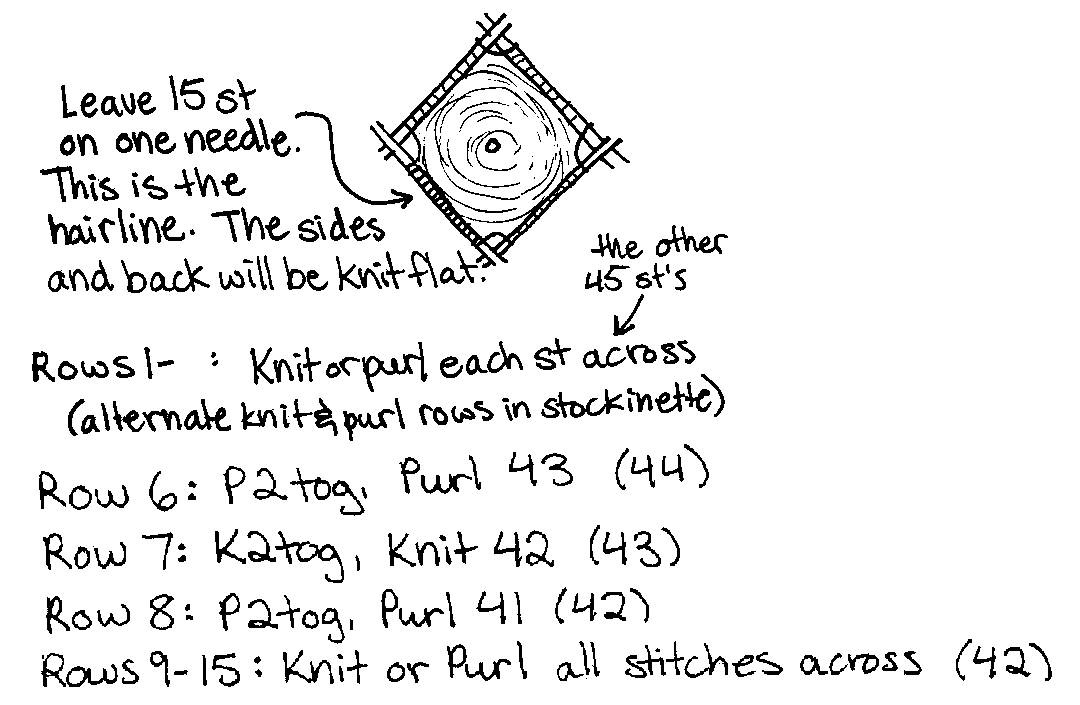 Leave 15 st
on one needle.
This is the
hairline. The sides
and back will be knit flat.
the other
45 st's
Rows 1- : Knit or purl each st across
(alternate knit & purl rows in stockinette)
Row 6: P2tog, Purl 43 (44)
Row 7: K2tog, Knit 42 (43)
Row 8: P2tog, Purl 41 (42)
Rows 9-15: Knit or Purl all stitches across (42)